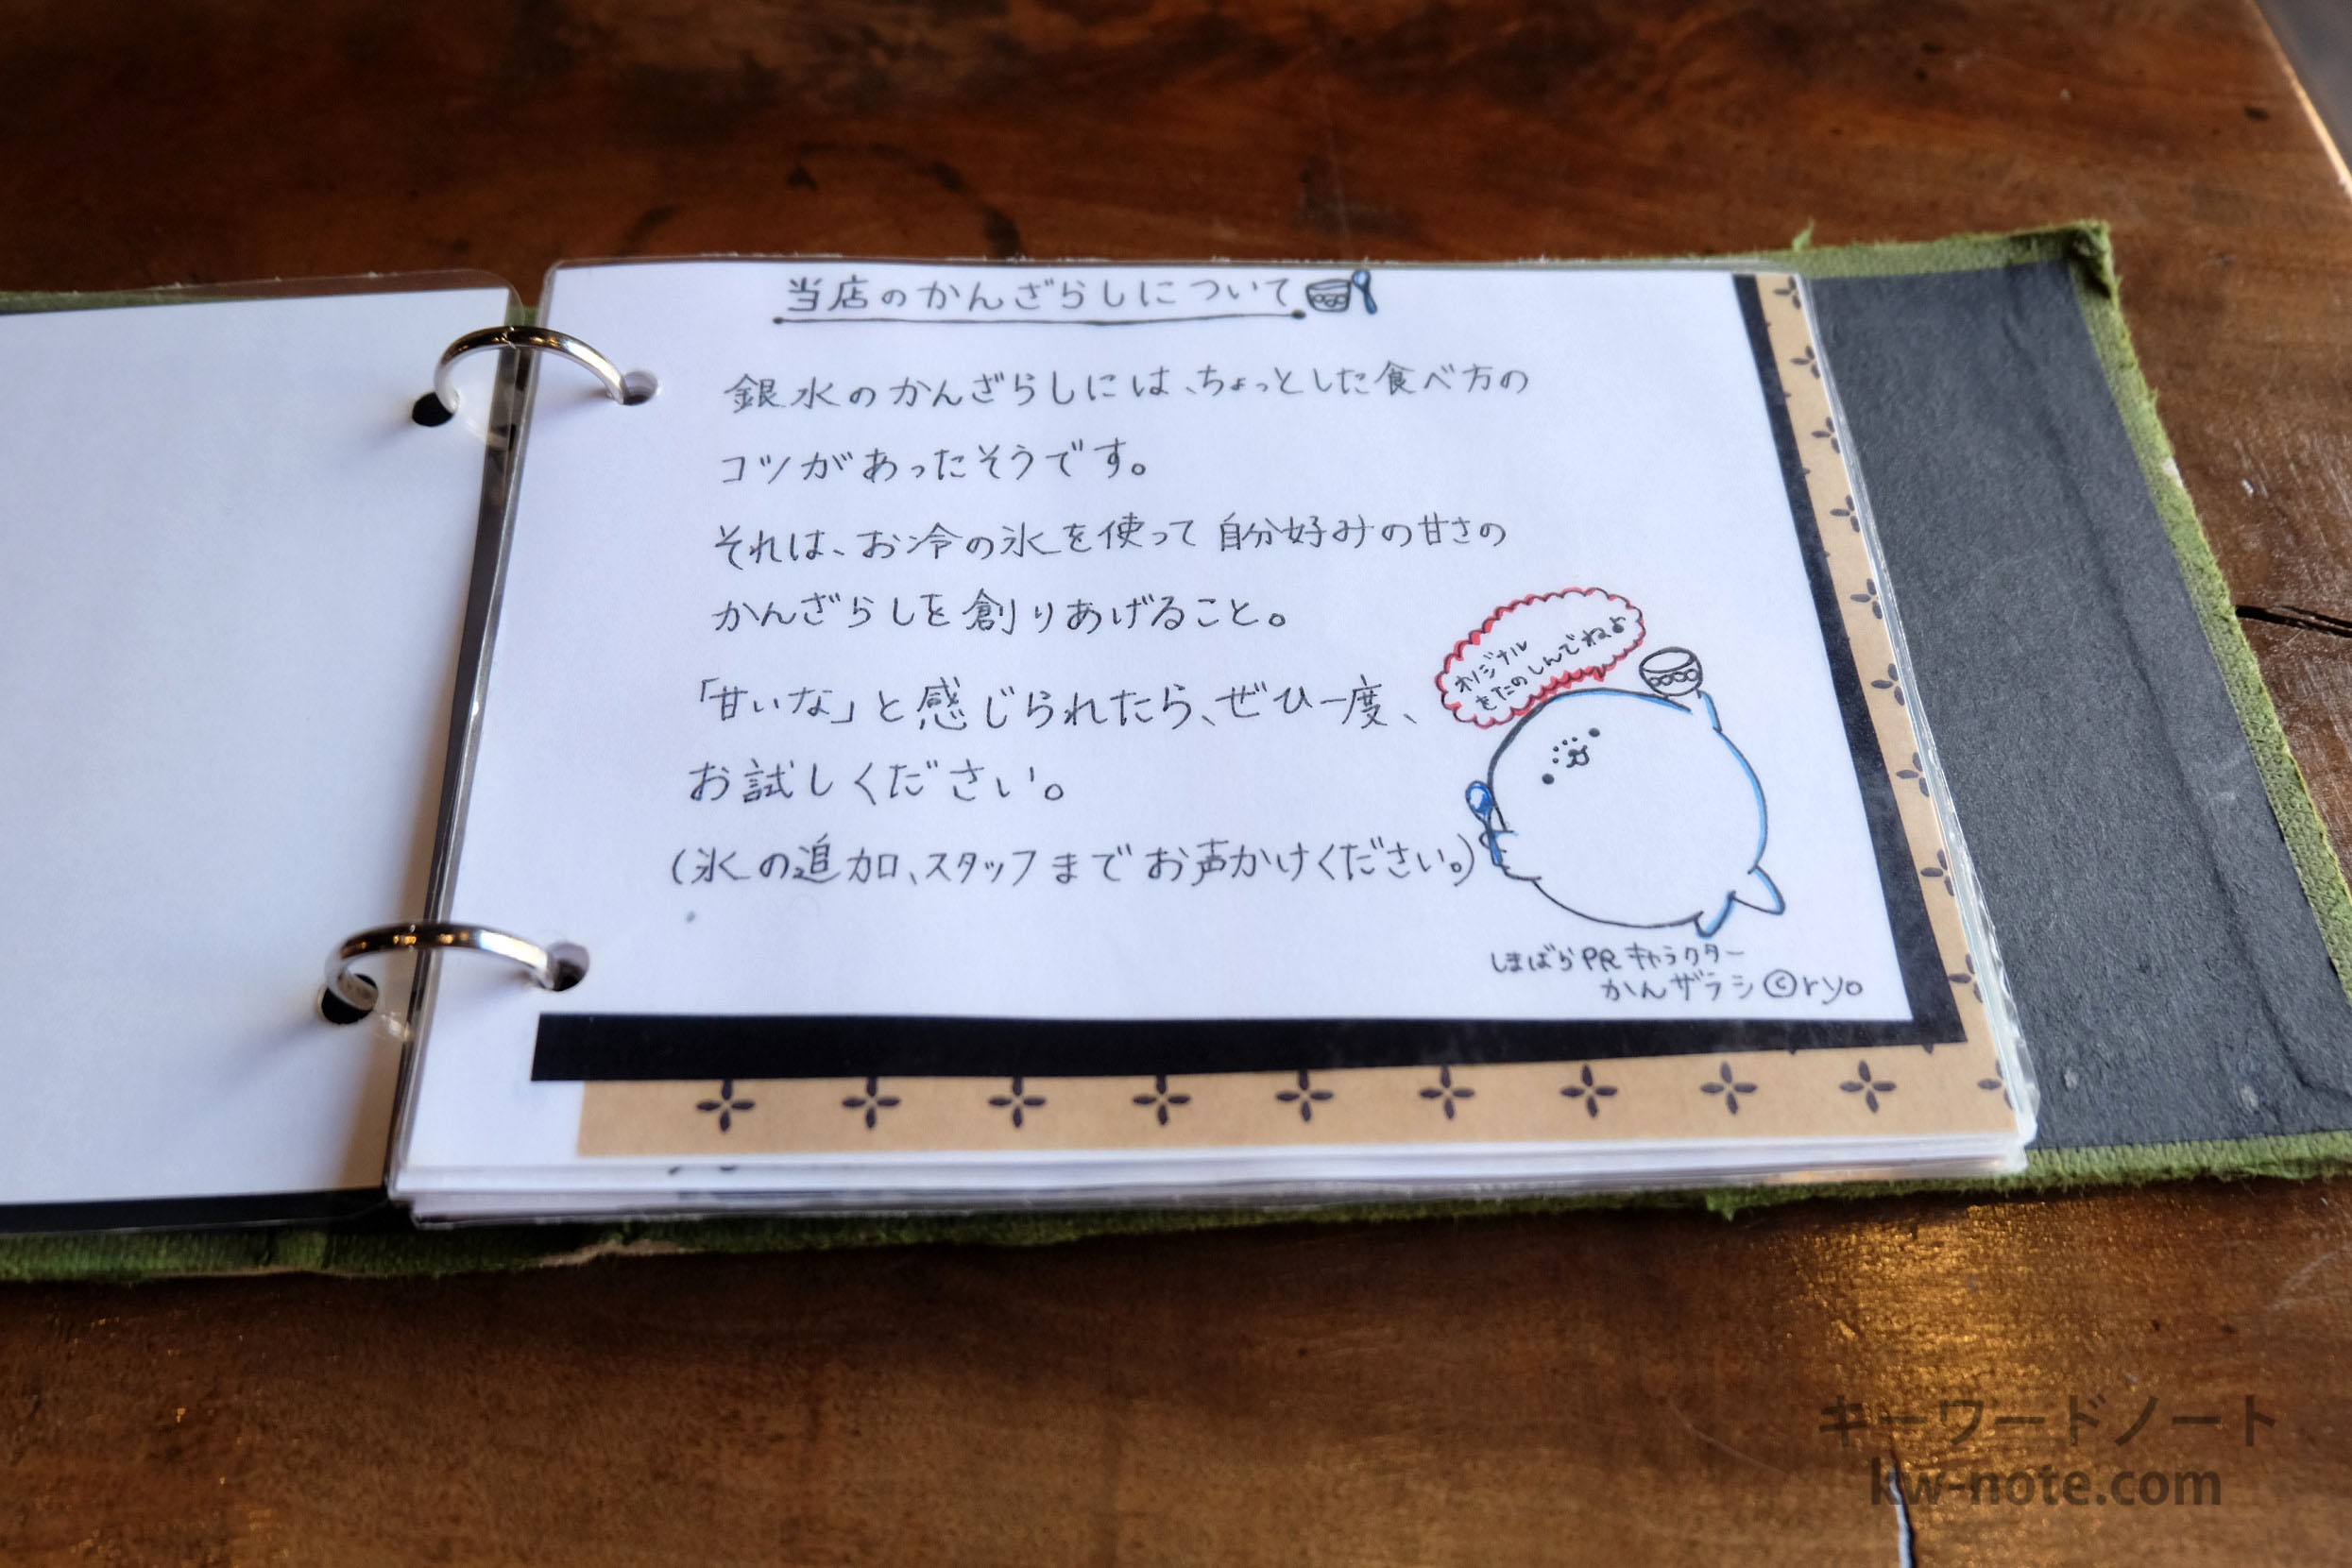 当店のかんざらしについて
銀水のかんざらしには、ちょっとした食べ方の
コツがあったそうです。
それは、お冷の氷を使って自分好みの甘さの
かんざらしを創りあげること。
「甘いな」と感じられたら、ぜひ一度、
お試しください。
(氷の追加、スタッフまでお声かけください。)
オリジナル
をたのしんでねよ
しまばらPRキャラクター
かんザラシ©ryo
キーワードノート
kw-note.com